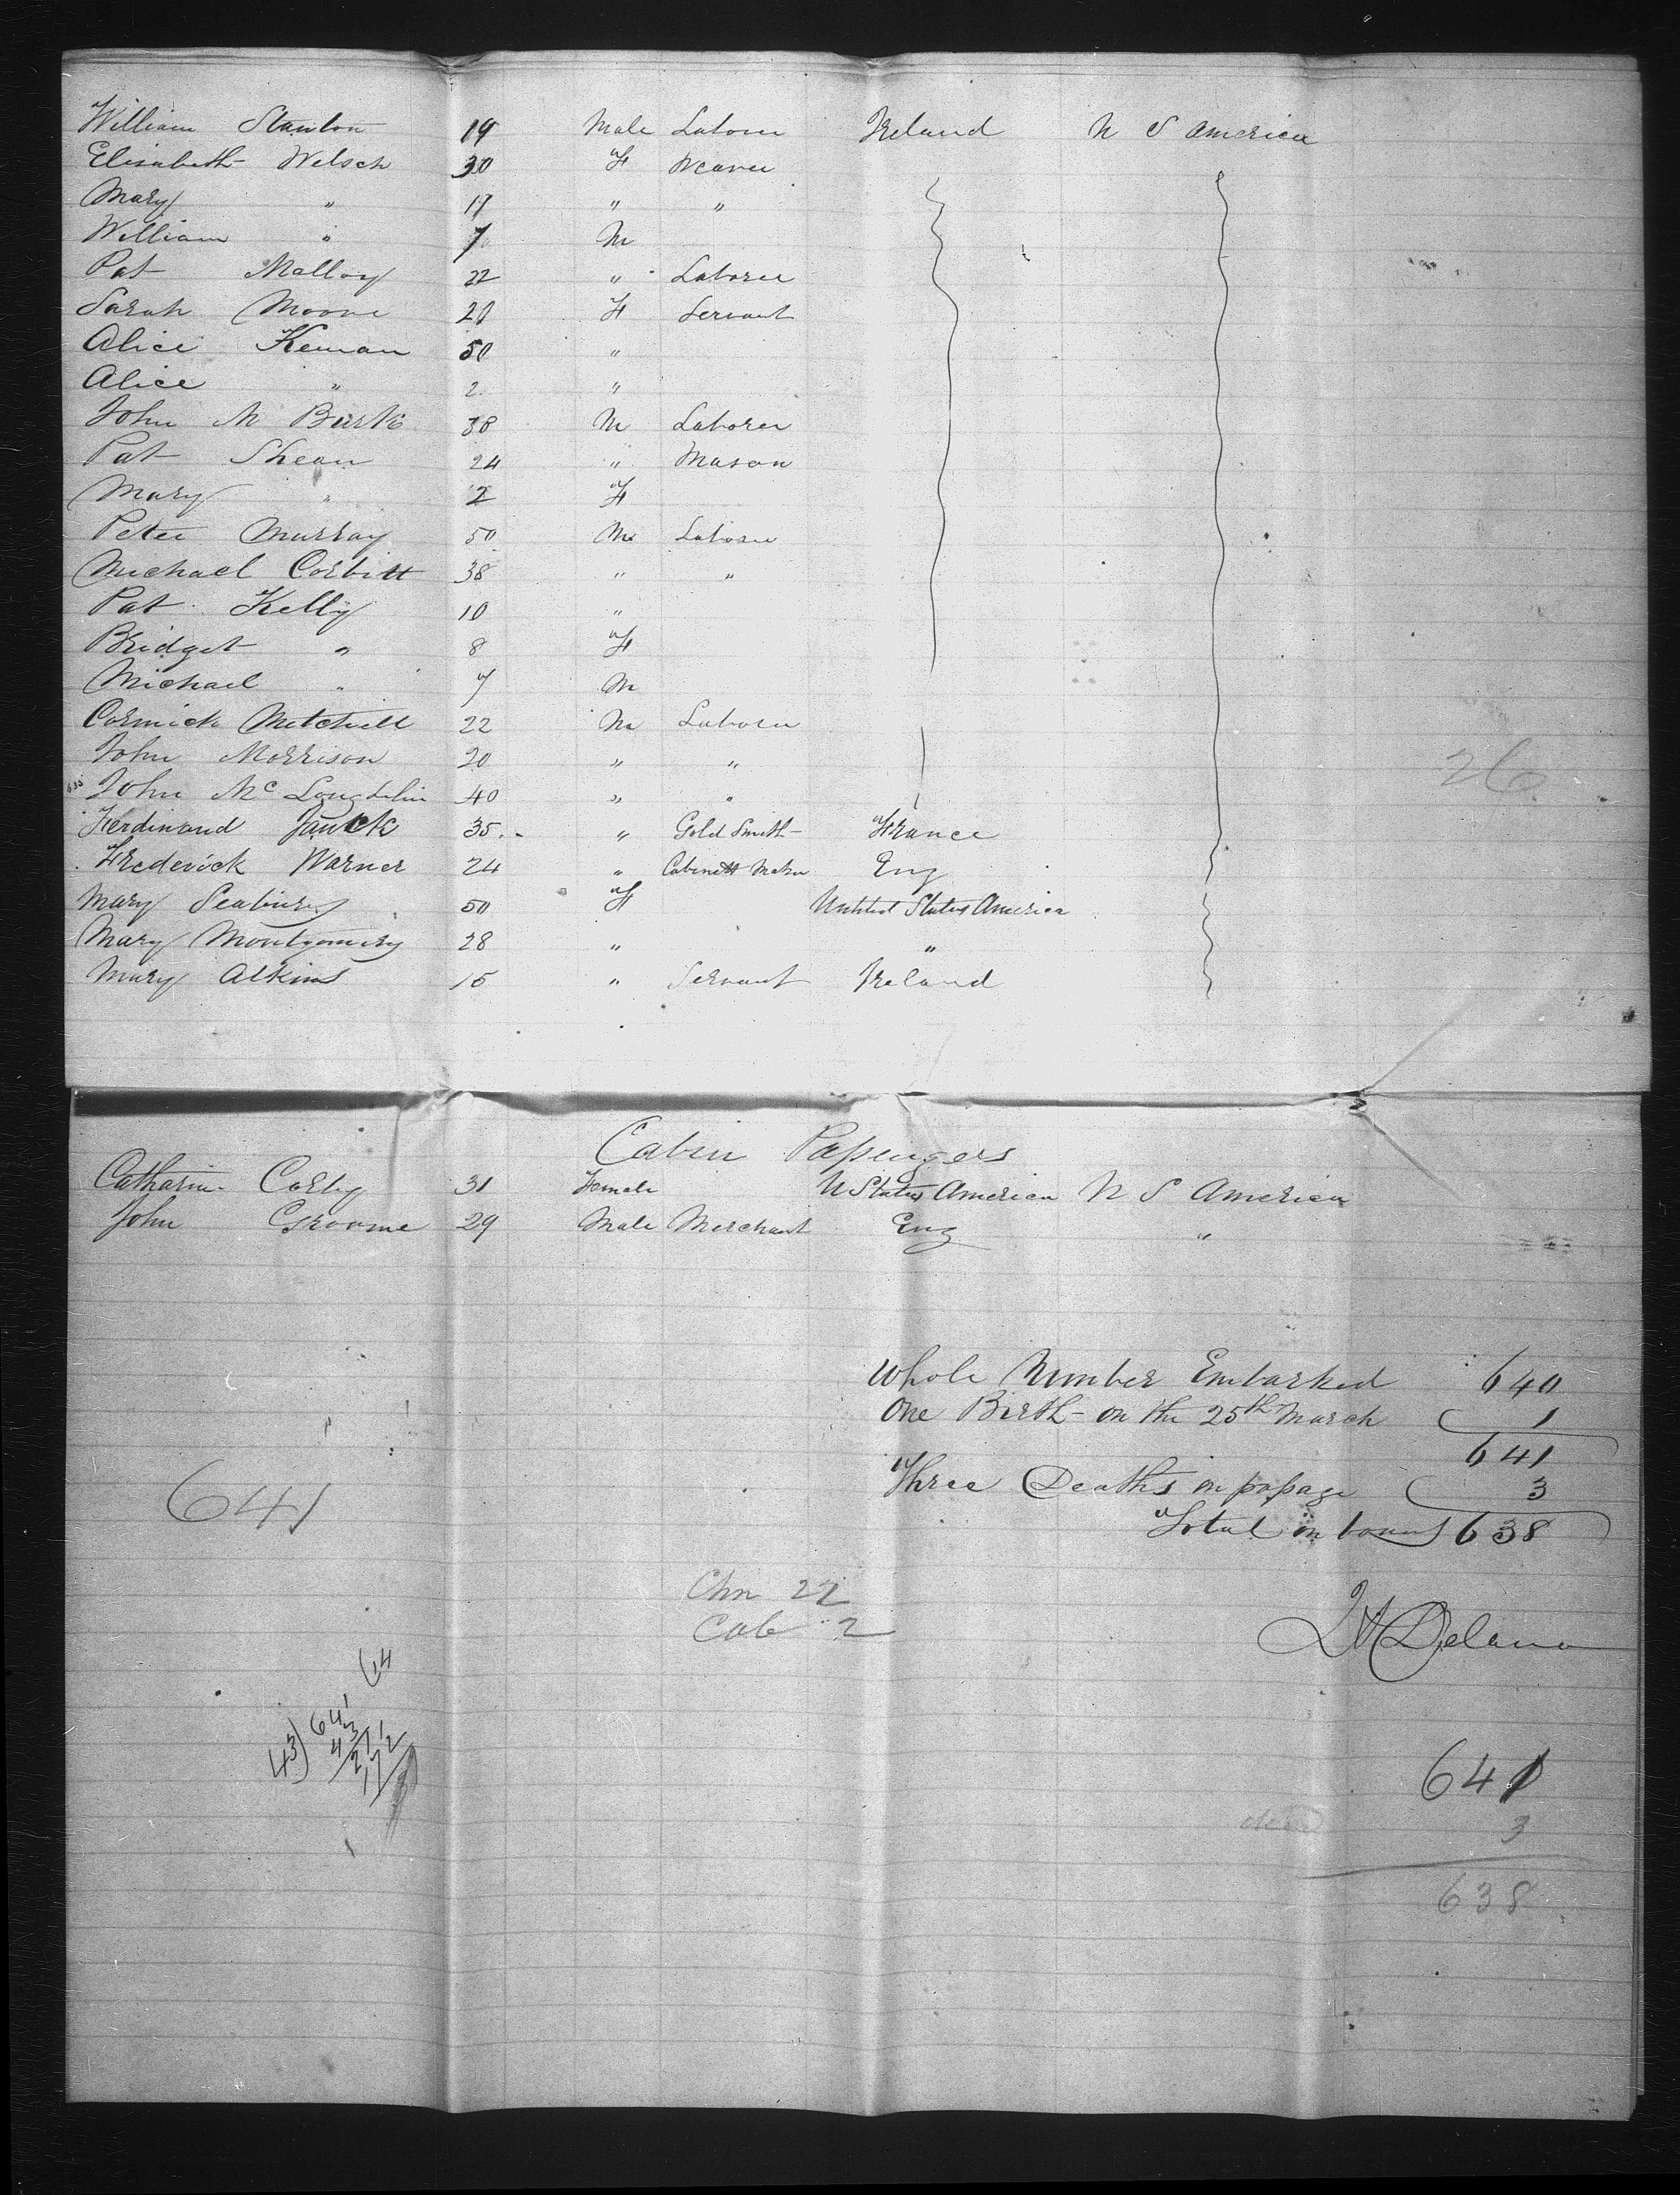 William Stanton 19 Male Laborer Ireland U S America
Elisabeth Welsch 30 F Weaver
Mary " 19 " "
William " 7 M
Pat Malloy 22 " Laborer
Sarah Moore 21 F Servant
Alice Keenan 50 "
Alice " 2 "
John M Burke 38 M Laborer
Pat Shean 24 " Mason
Mary " 2 F
Peter Murray 50 M Laborer
Michael Corbitt 38 " "
Pat Kelly 10 "
Bridget " 8 F
Michael " 7 M
Cormick Mitchell 22 M Laborer
John Morrison 20 " "
26
John Mc Loughlin 40 " "
Ferdinand Janck 35 " Gold Smith France
Frederick Warner 24 " Cabinett Maker Eng
Mary Seabury 50 F United States America
Mary Montgomery 28 " "
Mary Atkins 15 " Servant Ireland
Cabin Passengers
Catharine Corby 31 Female U States America U S America
John Groome 29 Male Merchant Eng "
Whole Number Embarked 640
One Birth on the 25th March 1
641
Three Deaths on passage 3
641
Total on board 638
Chn 22
Cab 2
Delano
14
43) 641
43
211
172
641
dead 3
638